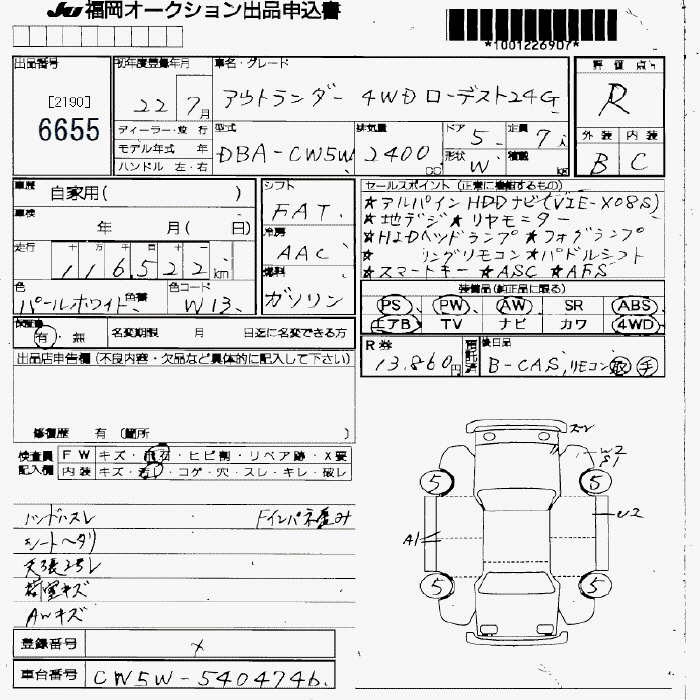 JU福岡オークション出品申込書
*1001226907*
出品番号
[2190]
6655
初年度登録年月
22 7月
車名・グレード
アウトランダー 4WD ローデスト24G
評価点
R
外装 内装
B C
ディーラー・並行
モデル年式 年
ハンドル 左・右
型式
DBA-CW5W
排気量
2400 cc
ドア 5
形状 W
定員 7人
積載 kg
車歴
自家用( )
車検
年 月( 日)
走行
十 万 千 百 十 一
116,522 km
色
パールホワイト
色替
色コード
W13
シフト
FAT
冷房
AAC
燃料
ガソリン
セールスポイント (正常に機能するもの)
★アルパインHDDナビ(VIE-X08S)
★地デジ★リヤモニター
★HIDヘッドランプ★フォグランプ
★ リングリモコン★パドルシフト
★スマートキー★ASC★AFS
装備品(純正品に限る)
PS PW AW SR ABS
エアB TV ナビ カワ 4WD
保証書
有・無
名変期限 月 日迄に名変できる方
R券
13,860円
預託済
後日品
B-CAS,リモコン 取 手
出品店申告欄(不良内容・欠品など具体的に記入して下さい)
修復歴 有 〔箇所 〕
検査員
記入欄
FW キズ・飛石・ヒビ割・リペア跡・X要
内装 キズ・汚レ・コゲ・穴・スレ・キレ・破レ
ハンドルスレ
Fインパネ歪み
シートヘタリ
天張ヨゴレ
荷室キズ
AWキズ
W2
S1
5 5
U2
A1
5 5
登録番号
×
車台番号
CW5W-5404746